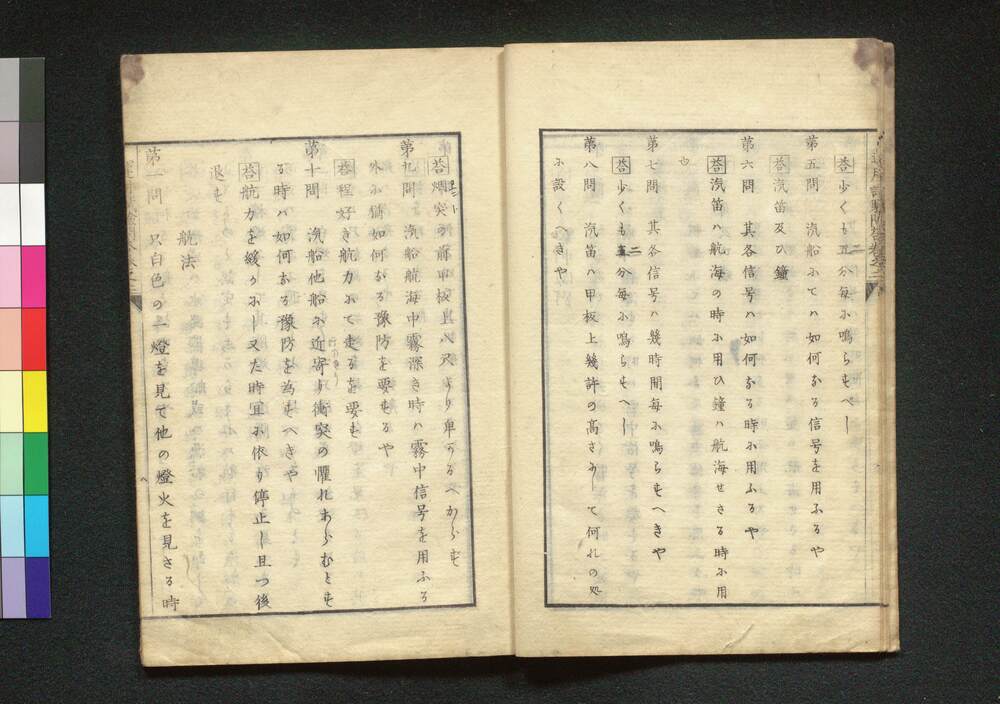 答 少くも五分毎ニ鳴らすべし
二
第五問 汽船ニてハ如何なる信号を用ふるや
答 汽笛及び鐘
第六問 其各信号ハ如何なる時ニ用ふるや
答 汽笛ハ航海の時ニ用ひ鐘ハ航海せさる時ニ用
也
第七問 其各信号ハ幾時間毎ニ鳴らすへきや
答 少くも五分毎ニ鳴らすへし
二
第八問 汽笛ハ甲板上幾許の高さニして何れの処
ニ設くへきや
答 烟突の前甲板上八尺より卑かるへからす
第九問 汽船航海中霧深き時ハ霧中信号を用ふる
外ニ猶如何なる豫防を要するや
答 程好き航力ニて走るを要す
第十問 汽船他船ニ近寄り衝突の懼れあらむとす
る時ハ如何なる豫防を為すへきや
答 航力を緩かニし又た時宜ニ依り停止し且つ後
退す
航法
第一問 只白色の一燈を見て他の燈火を見さる時